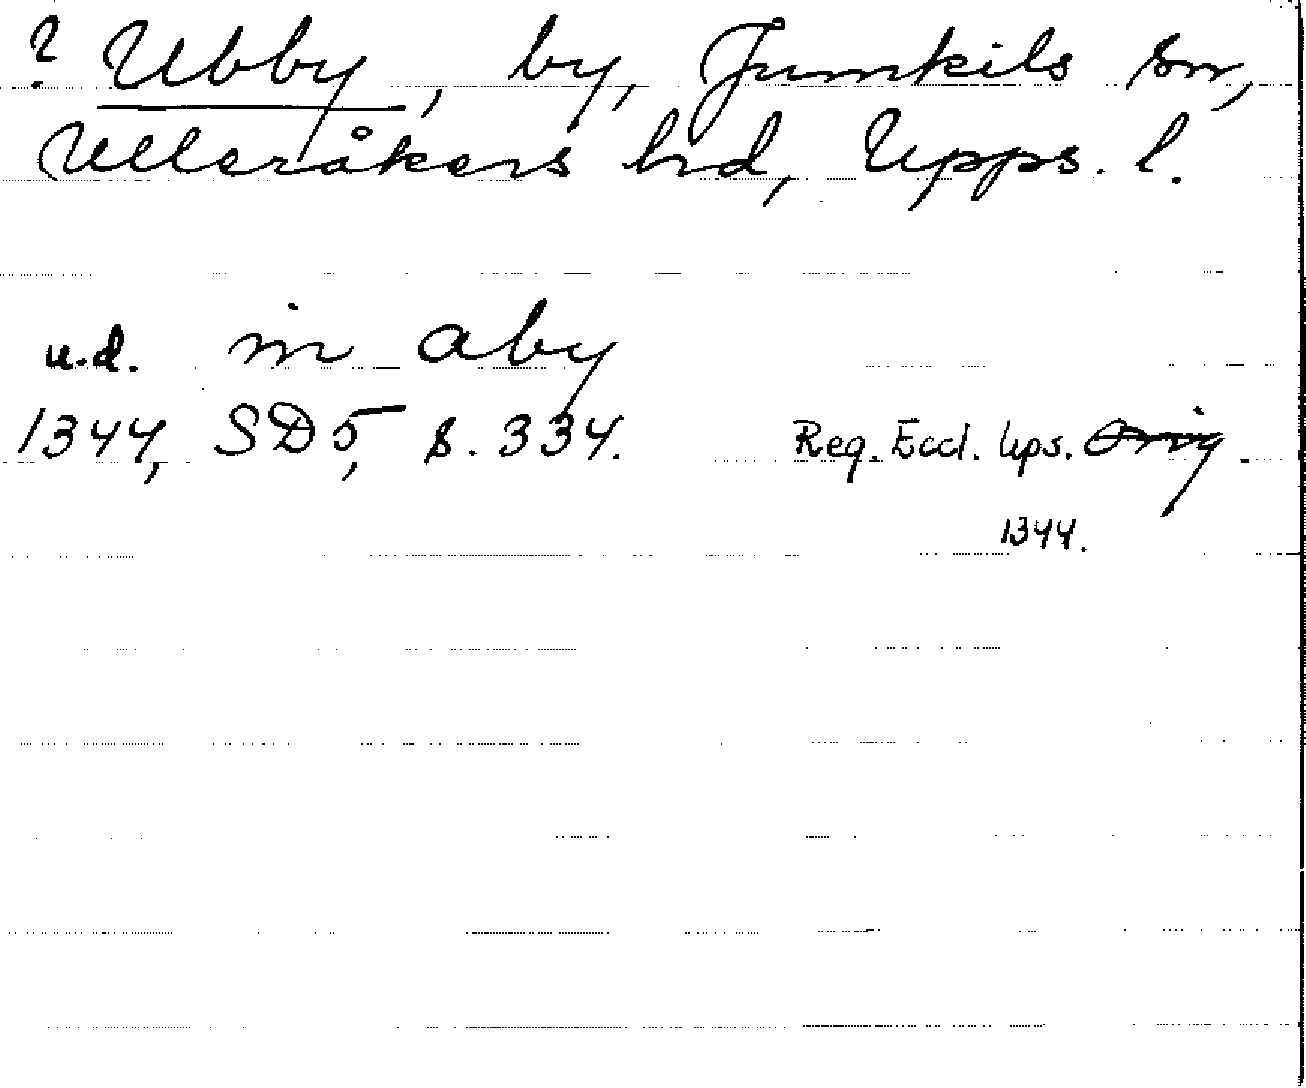 ? Ubby, by, Jumkils sn,
Ulleråkers hd, Upps. l.
u.d. in aby
1344, SD 5, s. 334. Reg. Eccl. Ups. Orig.
1344.